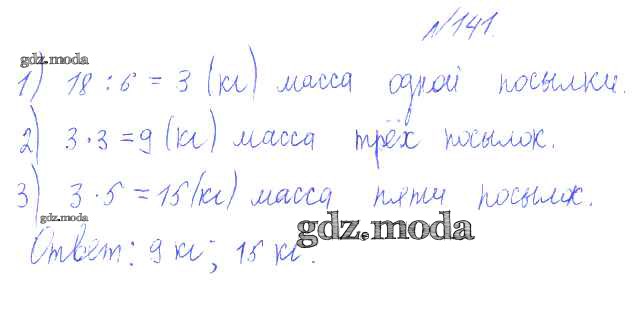 №141.
gdz.moda
1) 18 : 6 = 3 (кг) масса одной посылки.
2) 3 · 3 = 9 (кг) масса трёх посылок.
3) 3 · 5 = 15 (кг) масса пяти посылок.
gdz.moda
gdz.moda
Ответ: 9 кг; 15 кг.